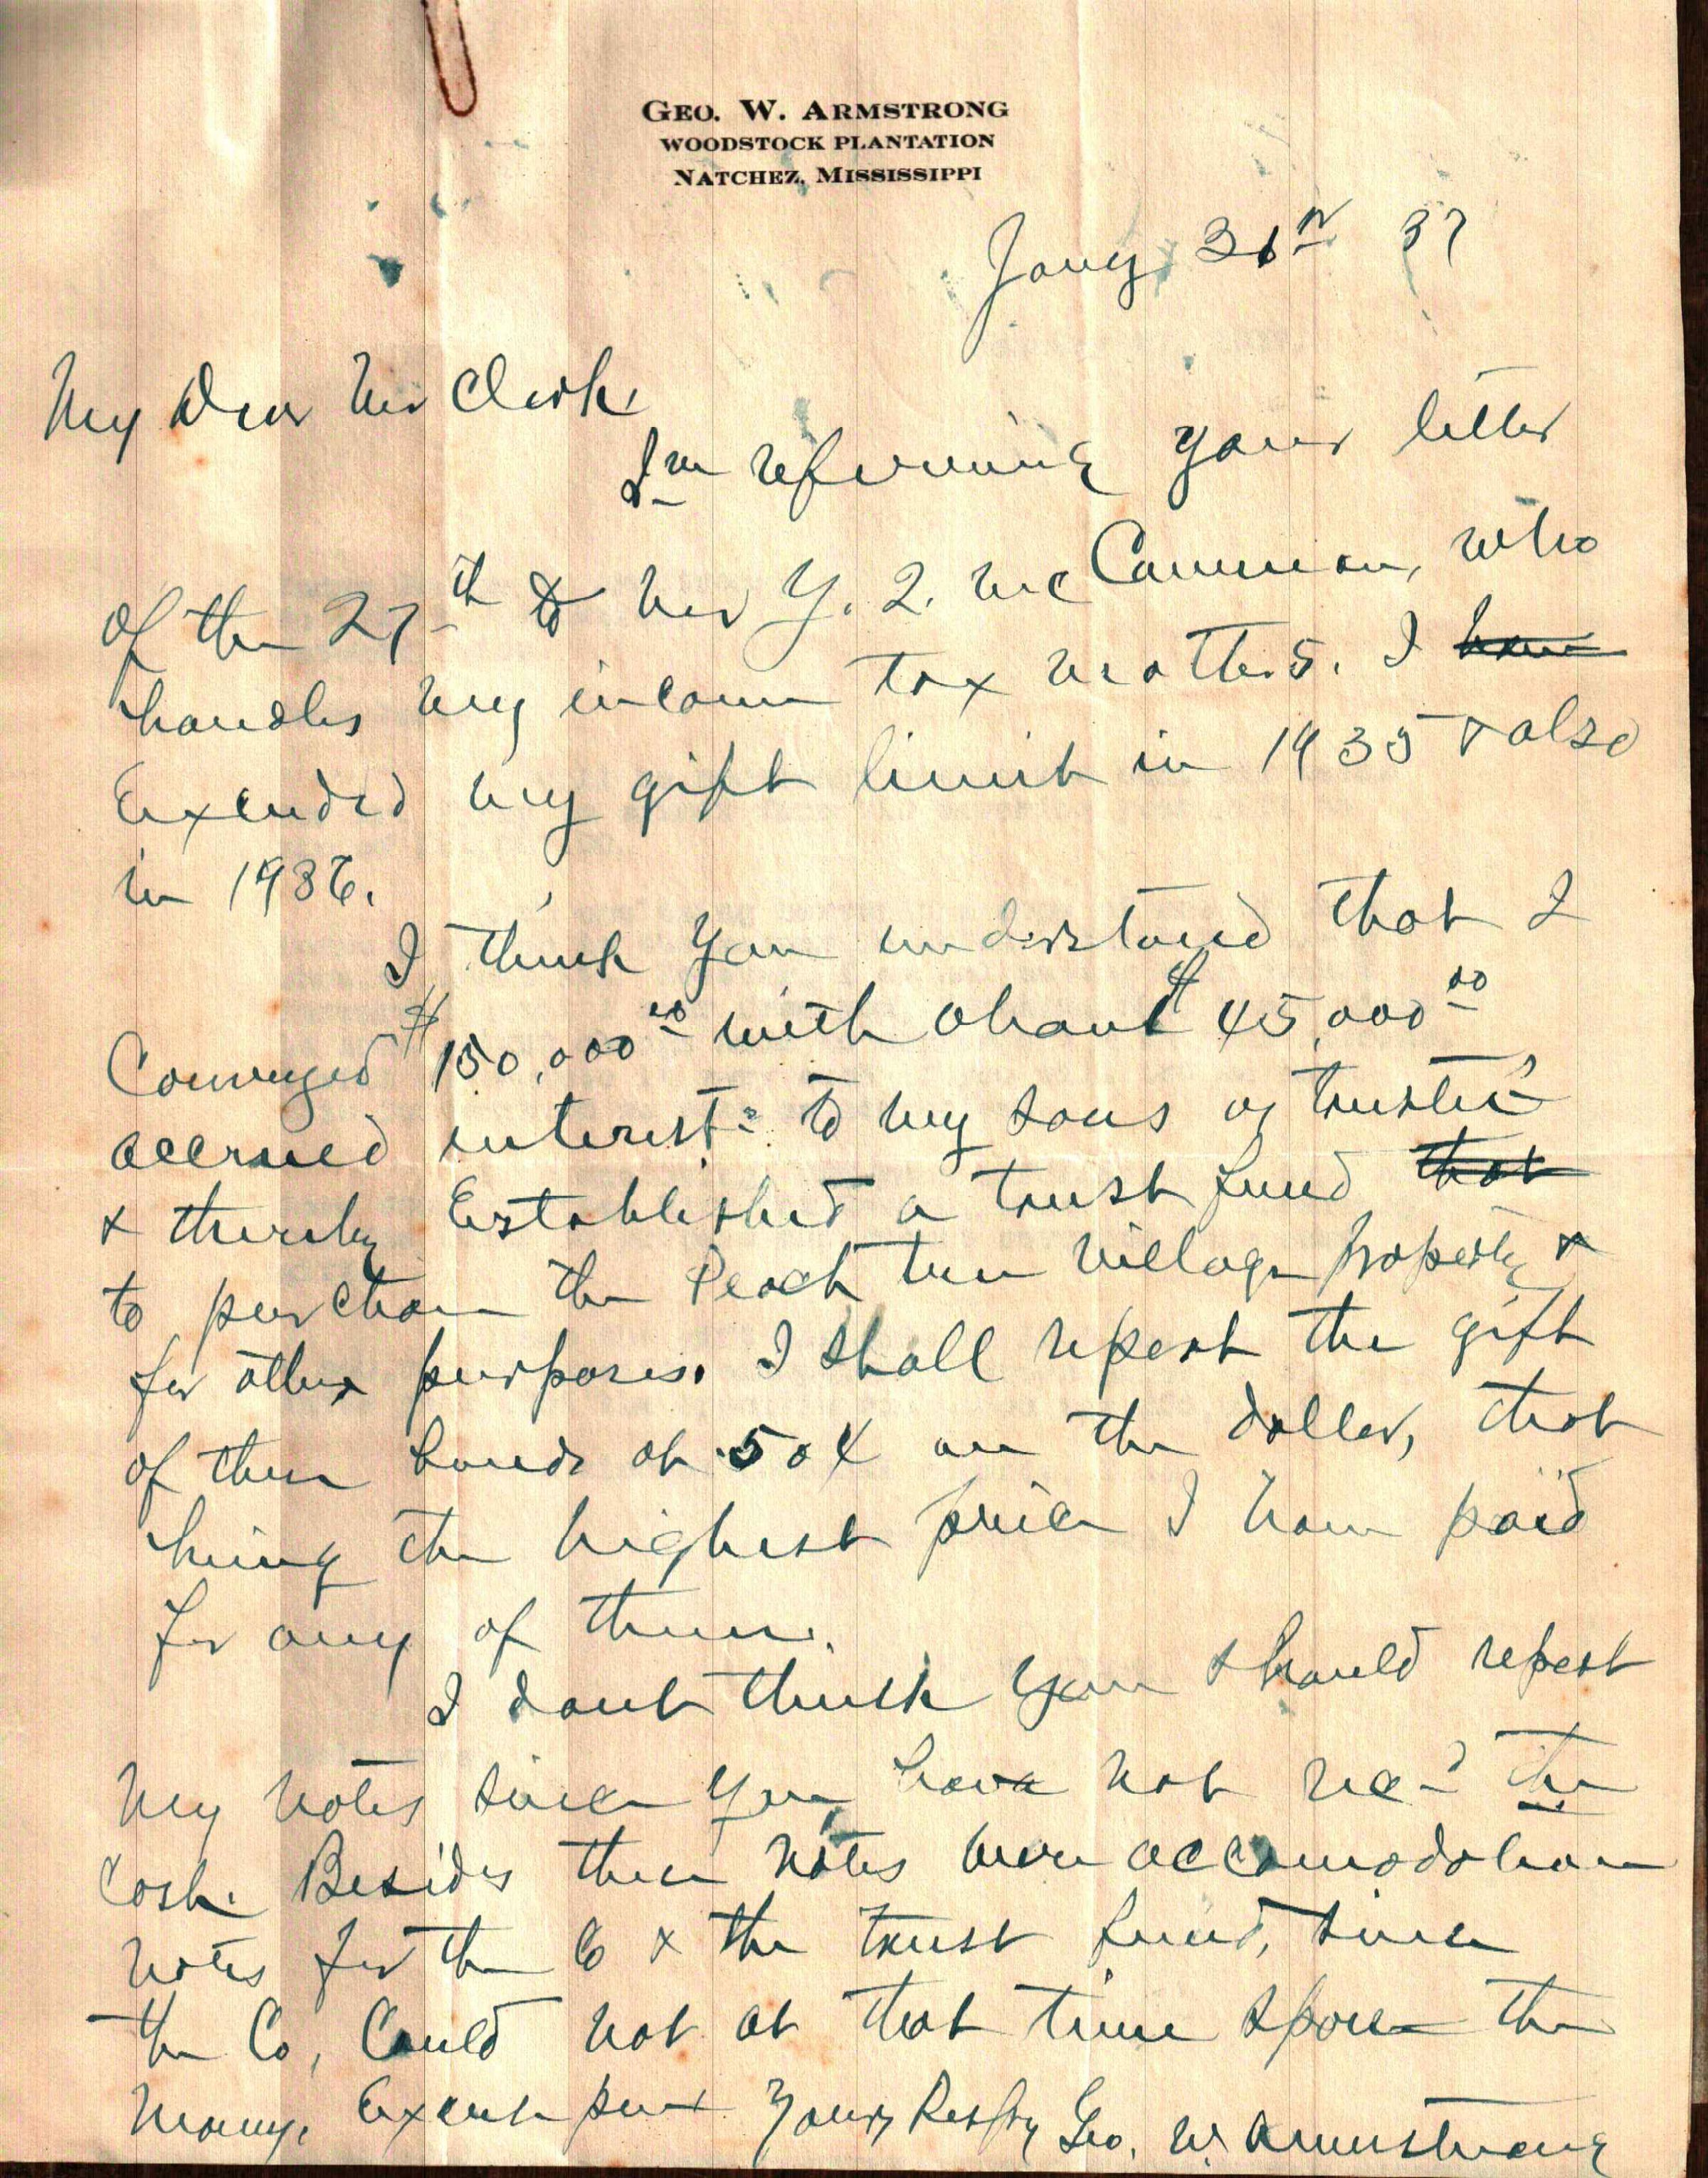 GEO. W. ARMSTRONG
WOODSTOCK PLANTATION
NATCHEZ, MISSISSIPPI
Jany 37
My Dear Mr Clark,
I'm referring your letter
of the 27th to Mr Y. Q. McCammon, who
handles my income tax matters. I have
Exceeded my gift limit in 1935 & also
in 1936.
I think you understand that I
Conveyed $150,000.00 with about $45,000.00
accrued interest to my sons as trustees
& thereby Established a trust fund that
to purchase the Peach tree village property &
for other purposes. I shall report the gift
of these bonds at 50¢ on the dollar, that
being the highest price I have paid
for any of them.
I dont think you should report
my notes since you have not recd the
Cash. Besides these notes were accomodation
notes for the Co & the trust fund, since
the Co, Could not at that time spare the
money. Yours Resfly Geo. W. Armstrong